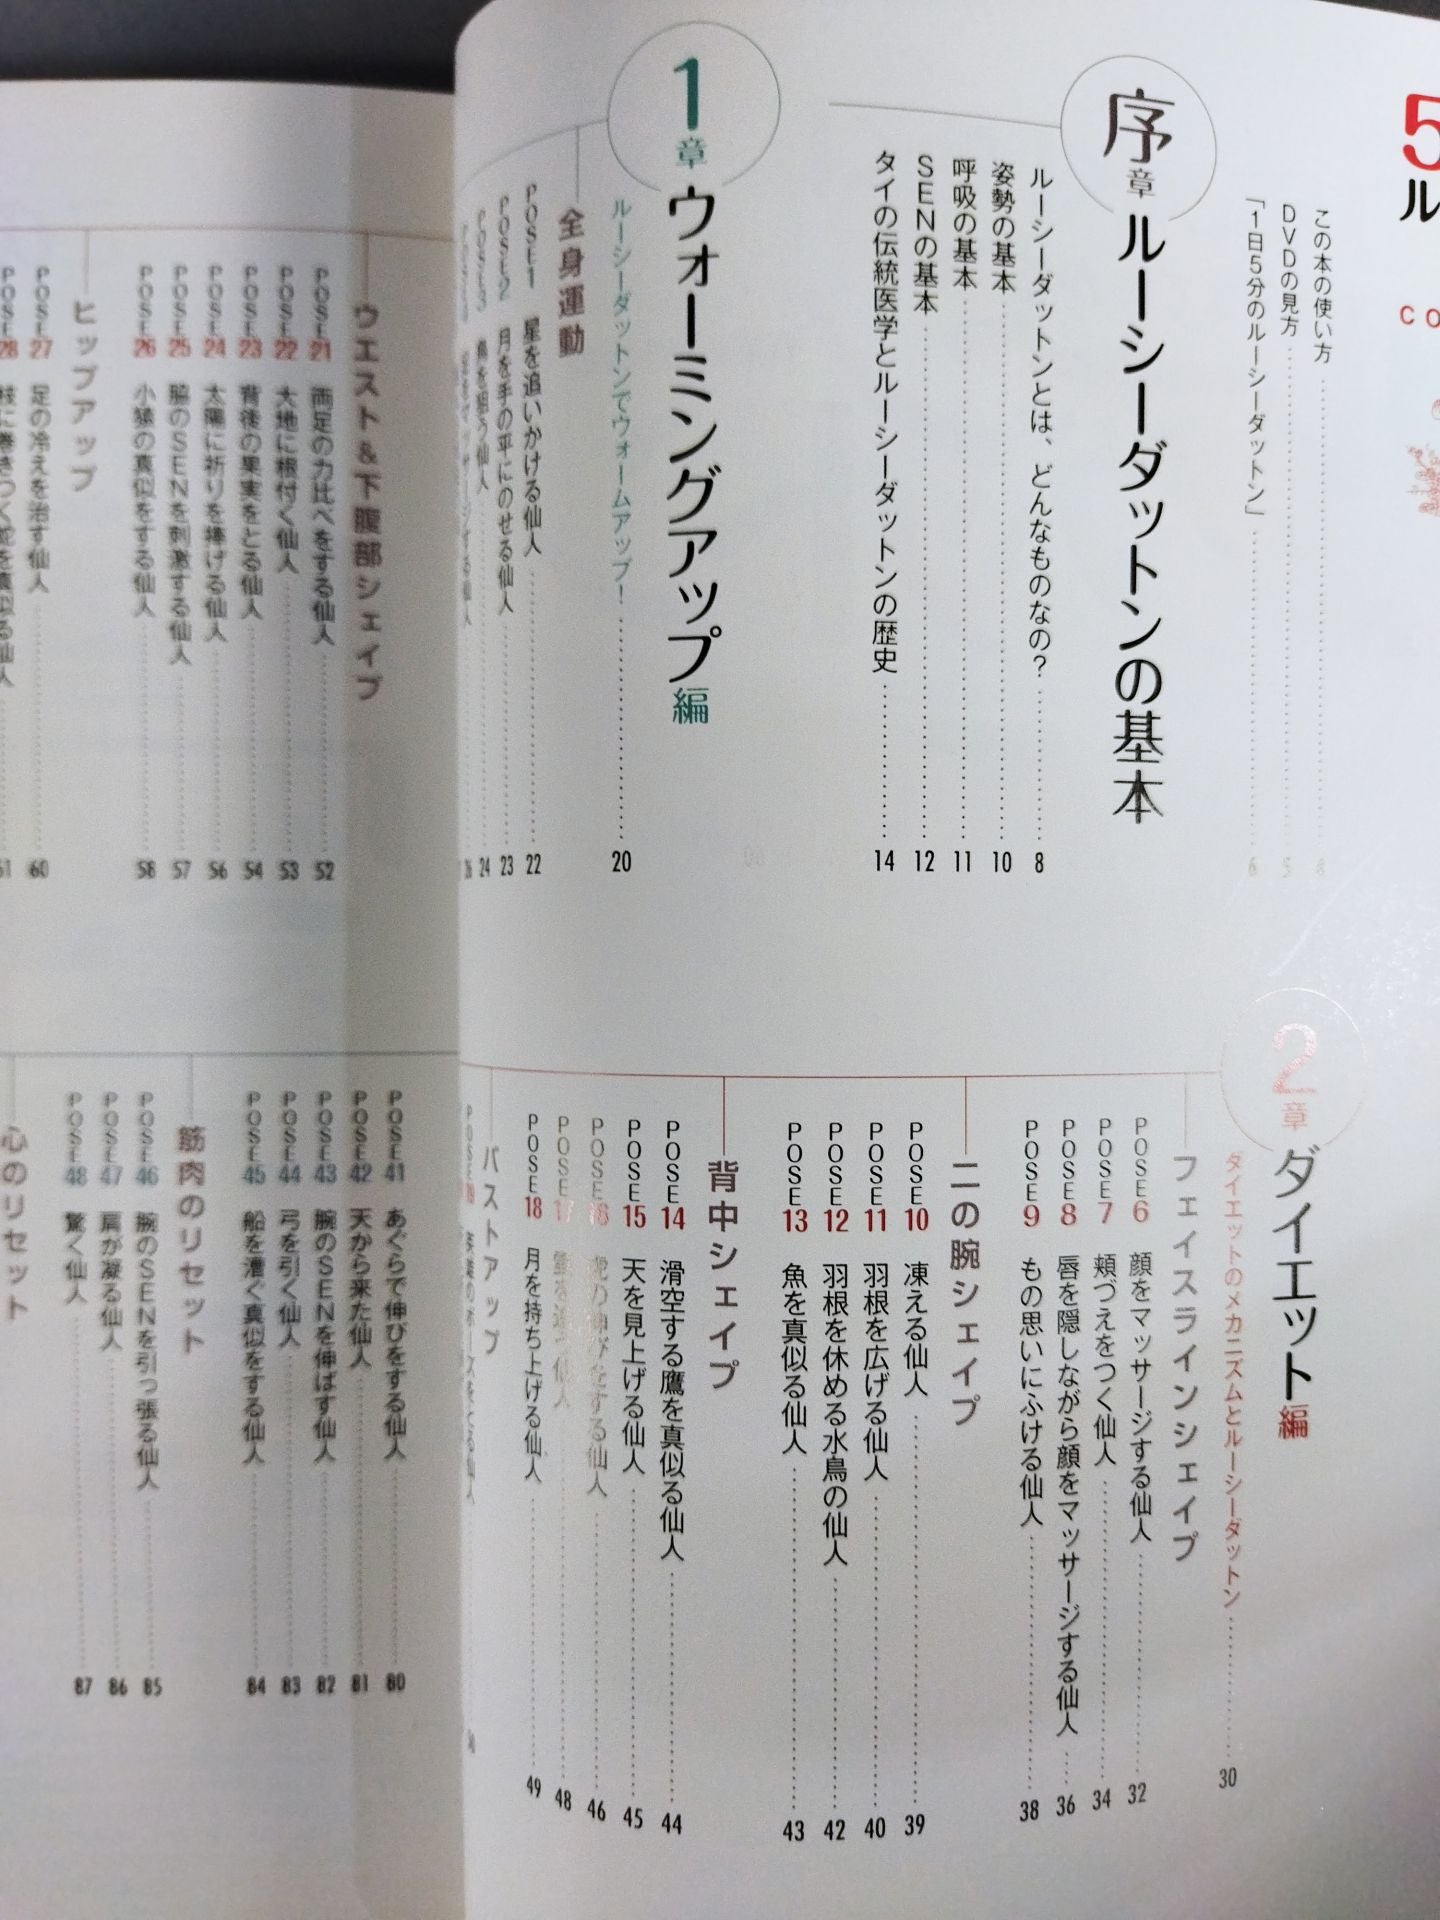 5
ル
CO
この本の使い方
DVDの見方 5
「1日5分のルーシーダットン」 6
序章 ルーシーダットンの基本
ルーシーダットンとは、どんなものなの？ 8
姿勢の基本 10
呼吸の基本 11
SENの基本 12
タイの伝統医学とルーシーダットンの歴史 14
1章 ウォーミングアップ編
ルーシーダットンでウォームアップ！ 20
全身運動
POSE1 星を追いかける仙人 22
POSE2 月を手の平にのせる仙人 23
POSE3 を狙う仙人 24
26
2章 ダイエット編
ダイエットのメカニズムとルーシーダットン 30
フェイスラインシェイプ
POSE6 顔をマッサージする仙人 32
POSE7 頬づえをつく仙人 34
POSE8 唇を隠しながら顔をマッサージする仙人 36
POSE9 もの思いにふける仙人 38
二の腕シェイプ
POSE10 凍える仙人 39
POSE11 羽根を広げる仙人 40
POSE12 羽根を休める水鳥の仙人 42
POSE13 魚を真似る仙人 43
背中シェイプ
POSE14 滑空する鷹を真似る仙人 44
POSE15 天を見上げる仙人 45
POSE16 の伸びをする仙人 46
POSE17 仙人 48
POSE18 月を持ち上げる仙人 49
バストアップ
POSE19
ウエスト＆下腹部シェイプ
POSE21 両足の力比べをする仙人 52
POSE22 大地に根付く仙人 53
POSE23 背後の果実をとる仙人 54
POSE24 太陽に祈りを捧げる仙人 56
POSE25 脇のSENを刺激する仙人 57
POSE26 小猿の真似をする仙人 58
ヒップアップ
POSE27 足の冷えを治す仙人 60
POSE28 枝に巻きつく蛇を真似る仙人 61
POSE41 あぐらで伸びをする仙人 80
POSE42 天から来た仙人 81
POSE43 腕のSENを伸ばす仙人 82
POSE44 弓を引く仙人 83
POSE45 船を漕ぐ真似をする仙人 84
筋肉のリセット
POSE46 腕のSENを引っ張る仙人 85
POSE47 肩が凝る仙人 86
POSE48 驚く仙人 87
心のリセット